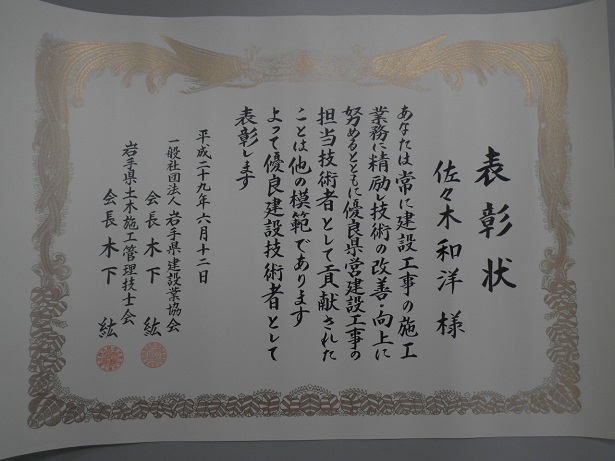 表彰状
佐々木和洋 様
あなたは常に建設工事の施工
業務に精励し技術の改善・向上に
努めるとともに優良県営建設工事の
担当技術者として貢献された
ことは他の模範であります
よって優良建設技術者として
表彰します
平成二十九年六月十二日
一般社団法人 岩手県建設業協会
会長 木下 紘
岩手県土木施工管理技士会
会長 木下 紘